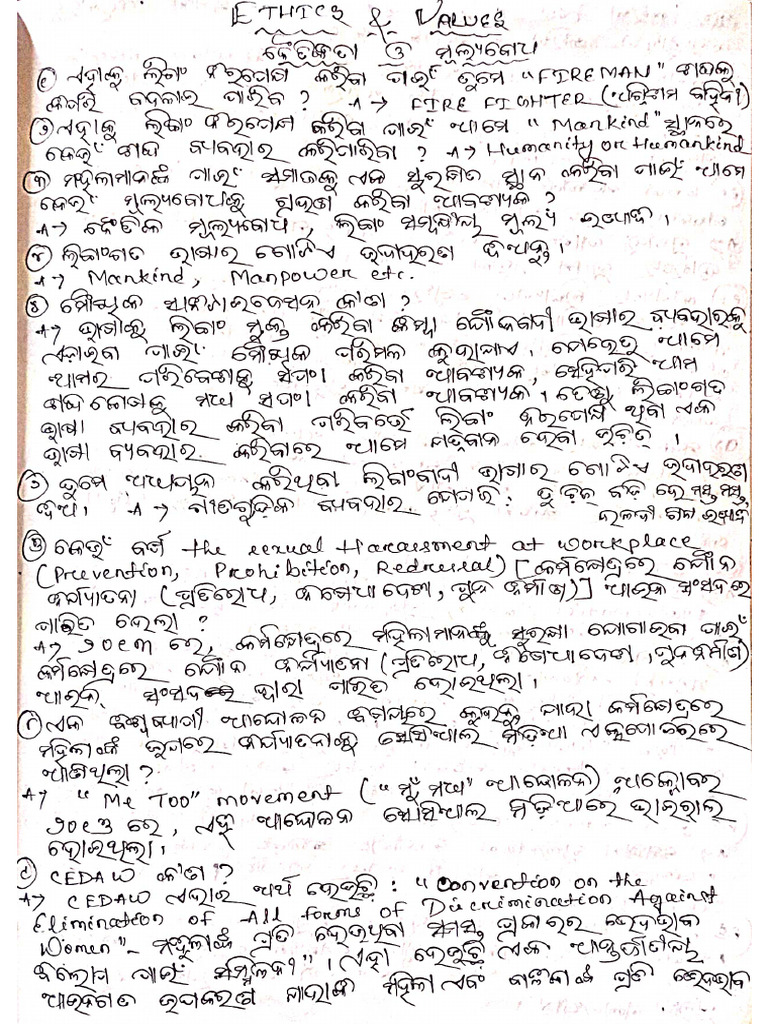 ETHICS & VALUES
ନୈତିକତା ଓ ମୂଲ୍ୟବୋଧ
୧ ଏହାକୁ ଲିଙ୍ଗ ନିରପେକ୍ଷ କରିବା ପାଇଁ ତୁମେ "FIREMAN" ଶବ୍ଦକୁ
କେମିତି ବଦଳାଇ ପାରିବ ? A → FIRE FIGHTER (ଅଗ୍ନିଶମ ବାହିନୀ)
୨ ଏହାକୁ ଲିଙ୍ଗ ନିରପେକ୍ଷ କରିବା ପାଇଁ ଆମେ "Mankind" ସ୍ଥାନରେ
କେଉଁ ଶବ୍ଦ ବ୍ୟବହାର କରିପାରିବା ? A → Humanity or Humankind
୩ ମହିଳାମାନଙ୍କ ପାଇଁ ସମାଜକୁ ଏକ ସୁରକ୍ଷିତ ସ୍ଥାନ କରିବା ପାଇଁ ଆମେ
କେଉଁ ମୂଲ୍ୟବୋଧକୁ ଗ୍ରହଣ କରିବା ଆବଶ୍ୟକ ?
A → ନୈତିକ ମୂଲ୍ୟବୋଧ, ଲିଙ୍ଗ ସମ୍ବନ୍ଧୀୟ ମୂଲ୍ୟ ଇତ୍ୟାଦି ।
୪ ଲିଙ୍ଗଗତ ଭାଷାର ଗୋଟିଏ ଉଦାହରଣ ଦିଅନ୍ତୁ ।
A → Mankind, Manpower etc.
୫ ମୌଖିକ କ'ଣ ?
A → ଭାଷାକୁ ଲିଙ୍ଗ ମୁକ୍ତ କରିବା କିମ୍ବା ଯୌନବାଦୀ ଭାଷାର ବ୍ୟବହାରକୁ
ଏଡାଇବା ପାଇଁ ମୌଖିକ ପରିମଳ କୁହାଯାଏ । ଯେହେତୁ ଆମେ
ଆମର ପରିବେଶକୁ ସଫା କରିବା ଆବଶ୍ୟକ, ସେହିପରି ଆମ
ଶବ୍ଦ କୋଷକୁ ମଧ୍ୟ ସଫା କରିବା ଆବଶ୍ୟକ । ତେଣୁ ଲିଙ୍ଗଗତ
ଭାଷା ବ୍ୟବହାର କରିବା ପରିବର୍ତ୍ତେ ଲିଙ୍ଗ ନିରପେକ୍ଷ ଥିବା ଏକ
ଭାଷା ବ୍ୟବହାର କରିବାରେ ଆମେ ଯତ୍ନବାନ ହେବା ଉଚିତ୍ ।
୬ ତୁମେ ଅଧ୍ୟୟନ କରିଥିବା ଲିଙ୍ଗବାଦୀ ଭାଷାର ଗୋଟିଏ ଉଦାହରଣ
ଦିଅ । A → ଗୀତଗୁଡ଼ିକ ବ୍ୟବହାର. ଯେପରି : ତୁ ଚିଜ୍ ବଡ଼ି ହେ ମସ୍ତ ମସ୍ତ,
ଇତ୍ୟାଦି
୭ କେଉଁ ବର୍ଷ the sexual Harassment at workplace
(Prevention, Prohibition, Redressal) [କର୍ମକ୍ଷେତ୍ରରେ ଯୌନ
ନିର୍ଯାତନା (ପ୍ରତିରୋଧ, ନିଷେଧାଦେଶ, ପୁନଃନିର୍ମାଣ)] ଆଇନ ସଂସଦରେ
ପାରିତ ହେଲା ?
A → ୨୦୧୩ ରେ, କର୍ମକ୍ଷେତ୍ରରେ ମହିଳାମାନଙ୍କୁ ସୁରକ୍ଷା ଯୋଗାଇବା ପାଇଁ
କର୍ମକ୍ଷେତ୍ରରେ ଯୌନ ନିର୍ଯାତନା (ପ୍ରତିରୋଧ, ନିଷେଧାଦେଶ, ପୁନଃନିର୍ମାଣ)
ଆଇନ୍ ସଂସଦ ଦ୍ୱାରା ପାରିତ ହୋଇଥିଲା ।
୮ ଏକ ବିଶ୍ୱବ୍ୟାପୀ ଆନ୍ଦୋଳନ ଯାହା କର୍ମକ୍ଷେତ୍ରରେ
ମହିଳାଙ୍କ ଉପରେ ନିର୍ଯାତନାକୁ ସୋସିଆଲ ମିଡ଼ିଆ
ଆଣିଥିଲା ?
A → "Me Too" movement ("ମୁଁ ମଧ୍ୟ" ଆନ୍ଦୋଳନ) ଅକ୍ଟୋବର
୨୦୧୭ ରେ, ଏହି ଆନ୍ଦୋଳନ ସୋସିଆଲ ମିଡ଼ିଆରେ ଭାଇରାଲ
ହୋଇଥିଲା ।
୯ CEDAW କ'ଣ ?
A → CEDAW ଏହାର ଅର୍ଥ ହେଉଛି : "Convention on the
Elimination of All forms of Discrimination Against
Women" - ମହିଳାଙ୍କ ପ୍ରତି ହେଉଥିବା ସମସ୍ତ ପ୍ରକାରର ଭେଦଭାବ
ବିଲୋପ ପାଇଁ ସମ୍ମିଳନୀ" । ଏହା ହେଉଛି ଏକ ଆନ୍ତର୍ଜାତୀୟ
ଆଇନଗତ ଉପକରଣ ଯାହାକି ମହିଳା ଏବଂ ବାଳିକାଙ୍କ ପ୍ରତି ଭେଦଭାବ